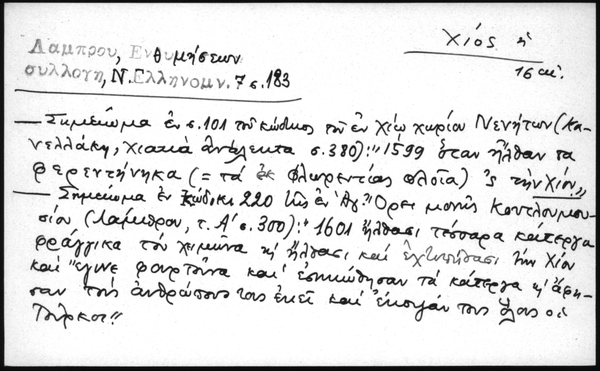 Χίος ἡ
16 αἰ.
Λαμπρου, Ενθυμήσεων
συλλογη, Ν. Ελληνομν. 7 σ. 183
— Σημείωμα ἐν σ. 101 τοῦ κώδικος τοῦ ἐν Χίῳ χωρίου Νενήτων (Κα-
νελλάκη, Χιακὰ ἀνάλεκτα σ. 380): "1599 ὅταν ἦλθαν τα
φερεντήνηκα (= τά ἐκ Φλωρεντίας πλοῖα) 'ς τὴν Χίον"
— Σημείωμα ἐν κώδικι 220 τῆς ἐν Ἁγ. Ὄρει μονῆς Κουτλουμου-
σίου (Λάμπρου, τ. Α' σ. 300): "1601 ἤλθασι τέσσαρα κάτεργα
φράγγικα τὸν χειμῶνα κὴ ἤλθασι καὶ ἐχτυπήθασι τὴν Χίον
καὶ ἔγινε φουρτοῦνα καὶ ἐσηκώθησαν τὰ κάτεργα κὴ ἄφη-
σαν τοὺς ἀνθρώπους τους ἐκεῖ καὶ ἔκοψάν τους ὅλους οἱ
Τοῦρκοι"